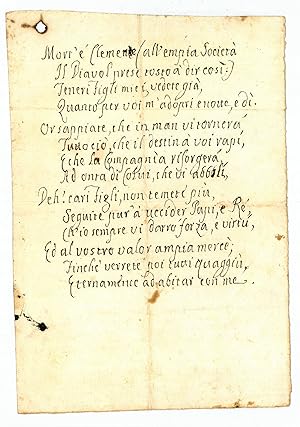 Morr'è Clemente (all'empia Società
Il Diavol prese tosto a dir così:)
Teneri figli miei, vedete già,
Quanto per voi m'adopri e notte, e dì.
Or sappiate, che in man vi tornerà
Tutto ciò, che il destin a voi rapì,
E che la Compagnia risorgerà,
Ad onta di Colui, che vi abolì.
Deh! cari figli, non temete più,
Seguite pur a uccider Papi, e Rè,
Ch'io sempre vi darrò forza, e virtù,
Ed al vostro valor ampia mercè;
Finchè verrete poi tutti quaggiù,
Eternamente ad abitar con me.